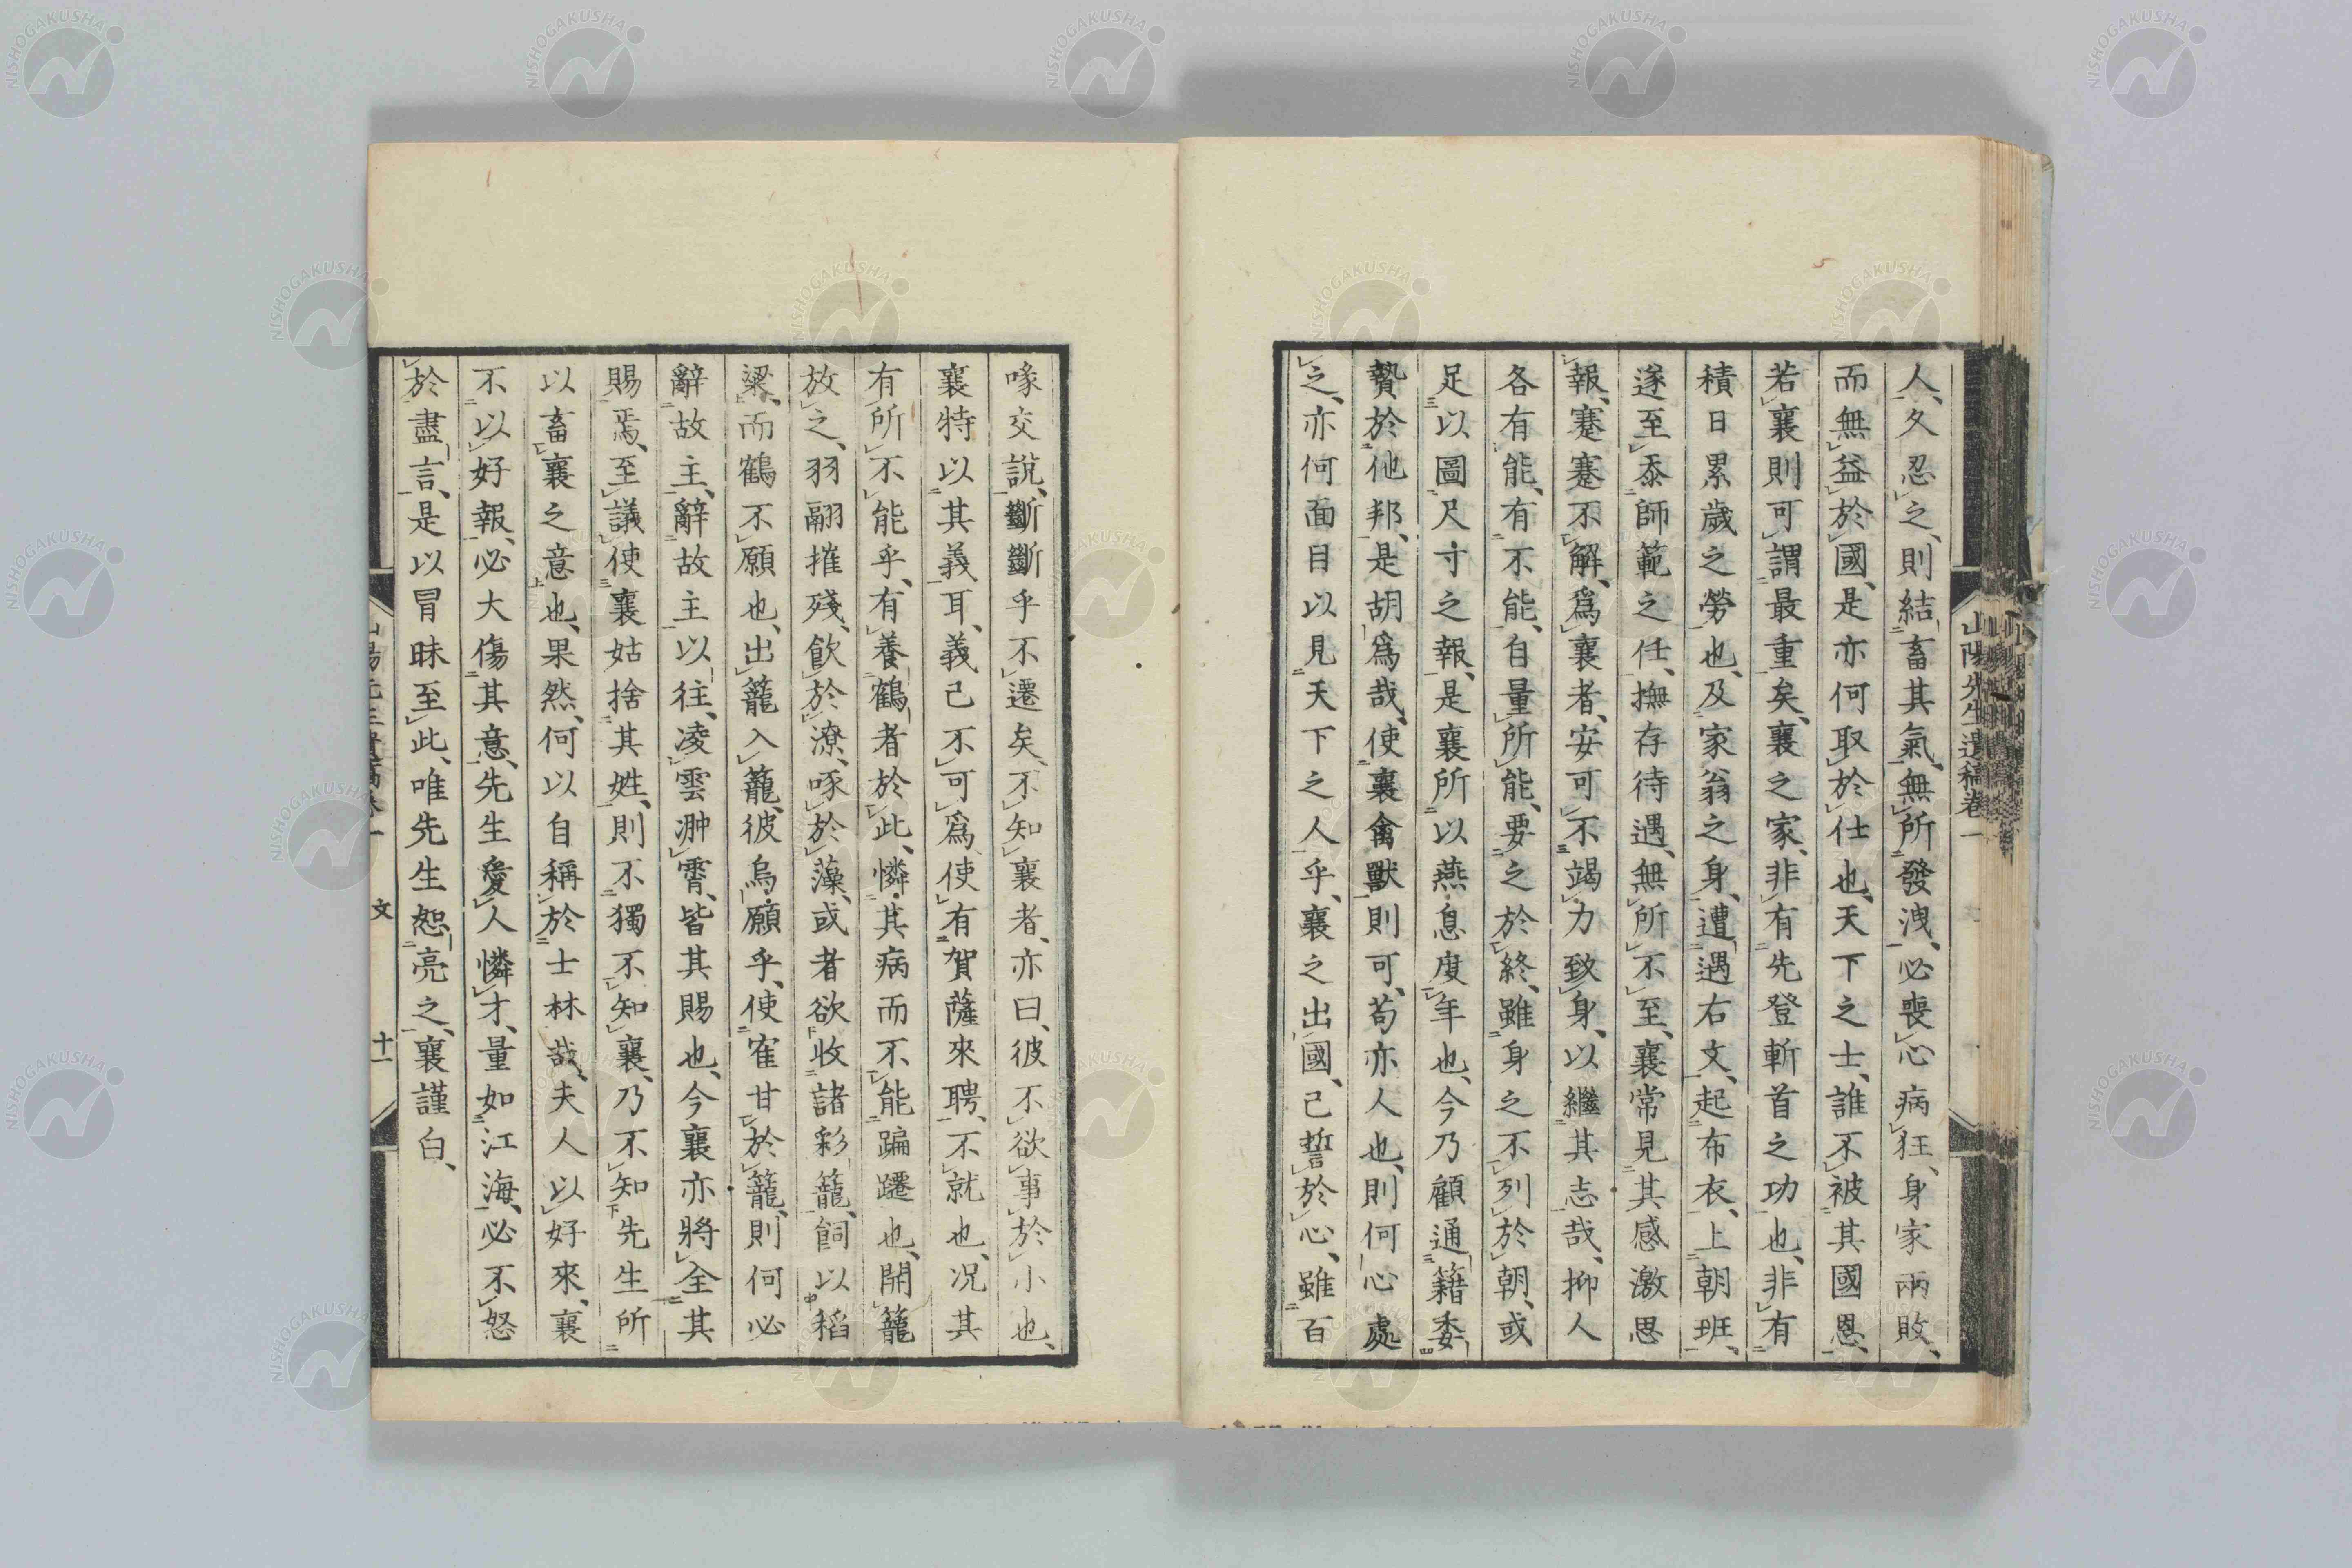 人、久忍之、則結畜其氣、無所發洩、必喪心病狂、身家兩敗、
而無益於國、是亦何取於仕也、天下之士、誰不被其國恩、
若襄則可謂最重矣、襄之家、非有先登斬首之功也、非有
積日累歲之勞也、及家翁之身、遭遇右文、起布衣、上朝班、
遂至忝師範之任、撫存待遇、無所不至、襄常見其感激思
報、蹇蹇不解、爲襄者、安可不竭力致身、以繼其志哉、抑人
各有能、有不能、自量所能、要之於終、雖身之不列於朝、或
足以圖尺寸之報、是襄所以燕息度年也、今乃顧通籍委
贄於他邦、是胡爲哉、使襄禽獸則可、苟亦人也、則何心處
之、亦何面目以見天下之人乎、襄之出國、己誓於心、雖百
山陽先生遺稿卷一
喙交說、斷斷乎不遷矣、不知襄者、亦曰、彼不欲事於小也、
襄特以其義耳、義己不可爲、使有賀薩來聘、不就也、况其
有所不能乎、有養鶴者於此、憐其病而不能蹁躚也、開籠
放之、羽翮摧殘、飮於潦、啄於藻、或者欲收諸彩籠、飼以稻
粱、而鶴不願也、出籠入籠、彼烏願乎、使寉甘於籠、則何必
辭故主、辭故主以往、凌雲翀霄、皆其賜也、今襄亦將全其
賜焉、至議使襄姑捨其姓、則不獨不知襄、乃不知先生所
以畜襄之意也、果然、何以自稱於士林哉、夫人以好來、襄
不以好報、必大傷其意、先生愛人憐才、量如江海、必不怒
於盡言、是以冒昧至此、唯先生恕亮之、襄謹白、
文
十一